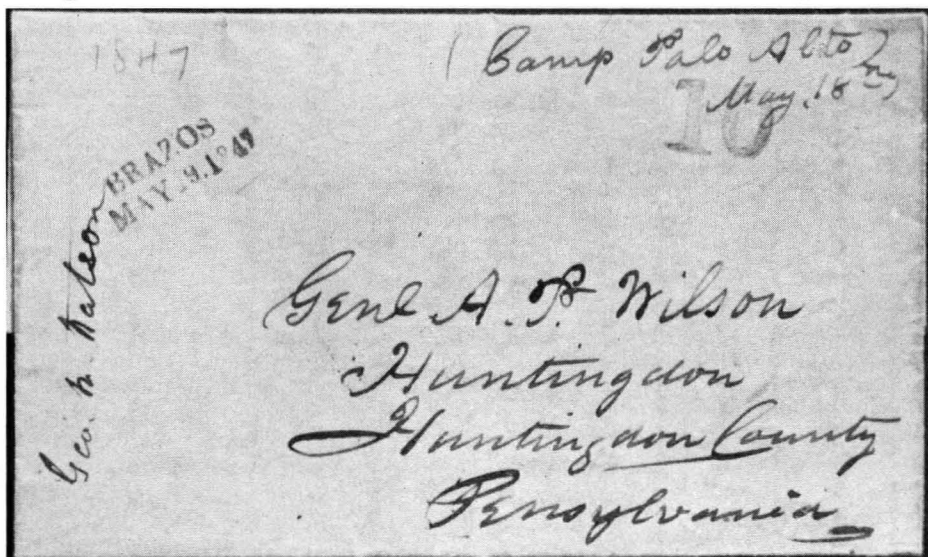 1847
(Camp Palo Alto
May. 18
10
BRAZOS
MAY 1847
Geo.
Genl A. P. Wilson
Huntingdon
Huntingdon County
Pensylvania